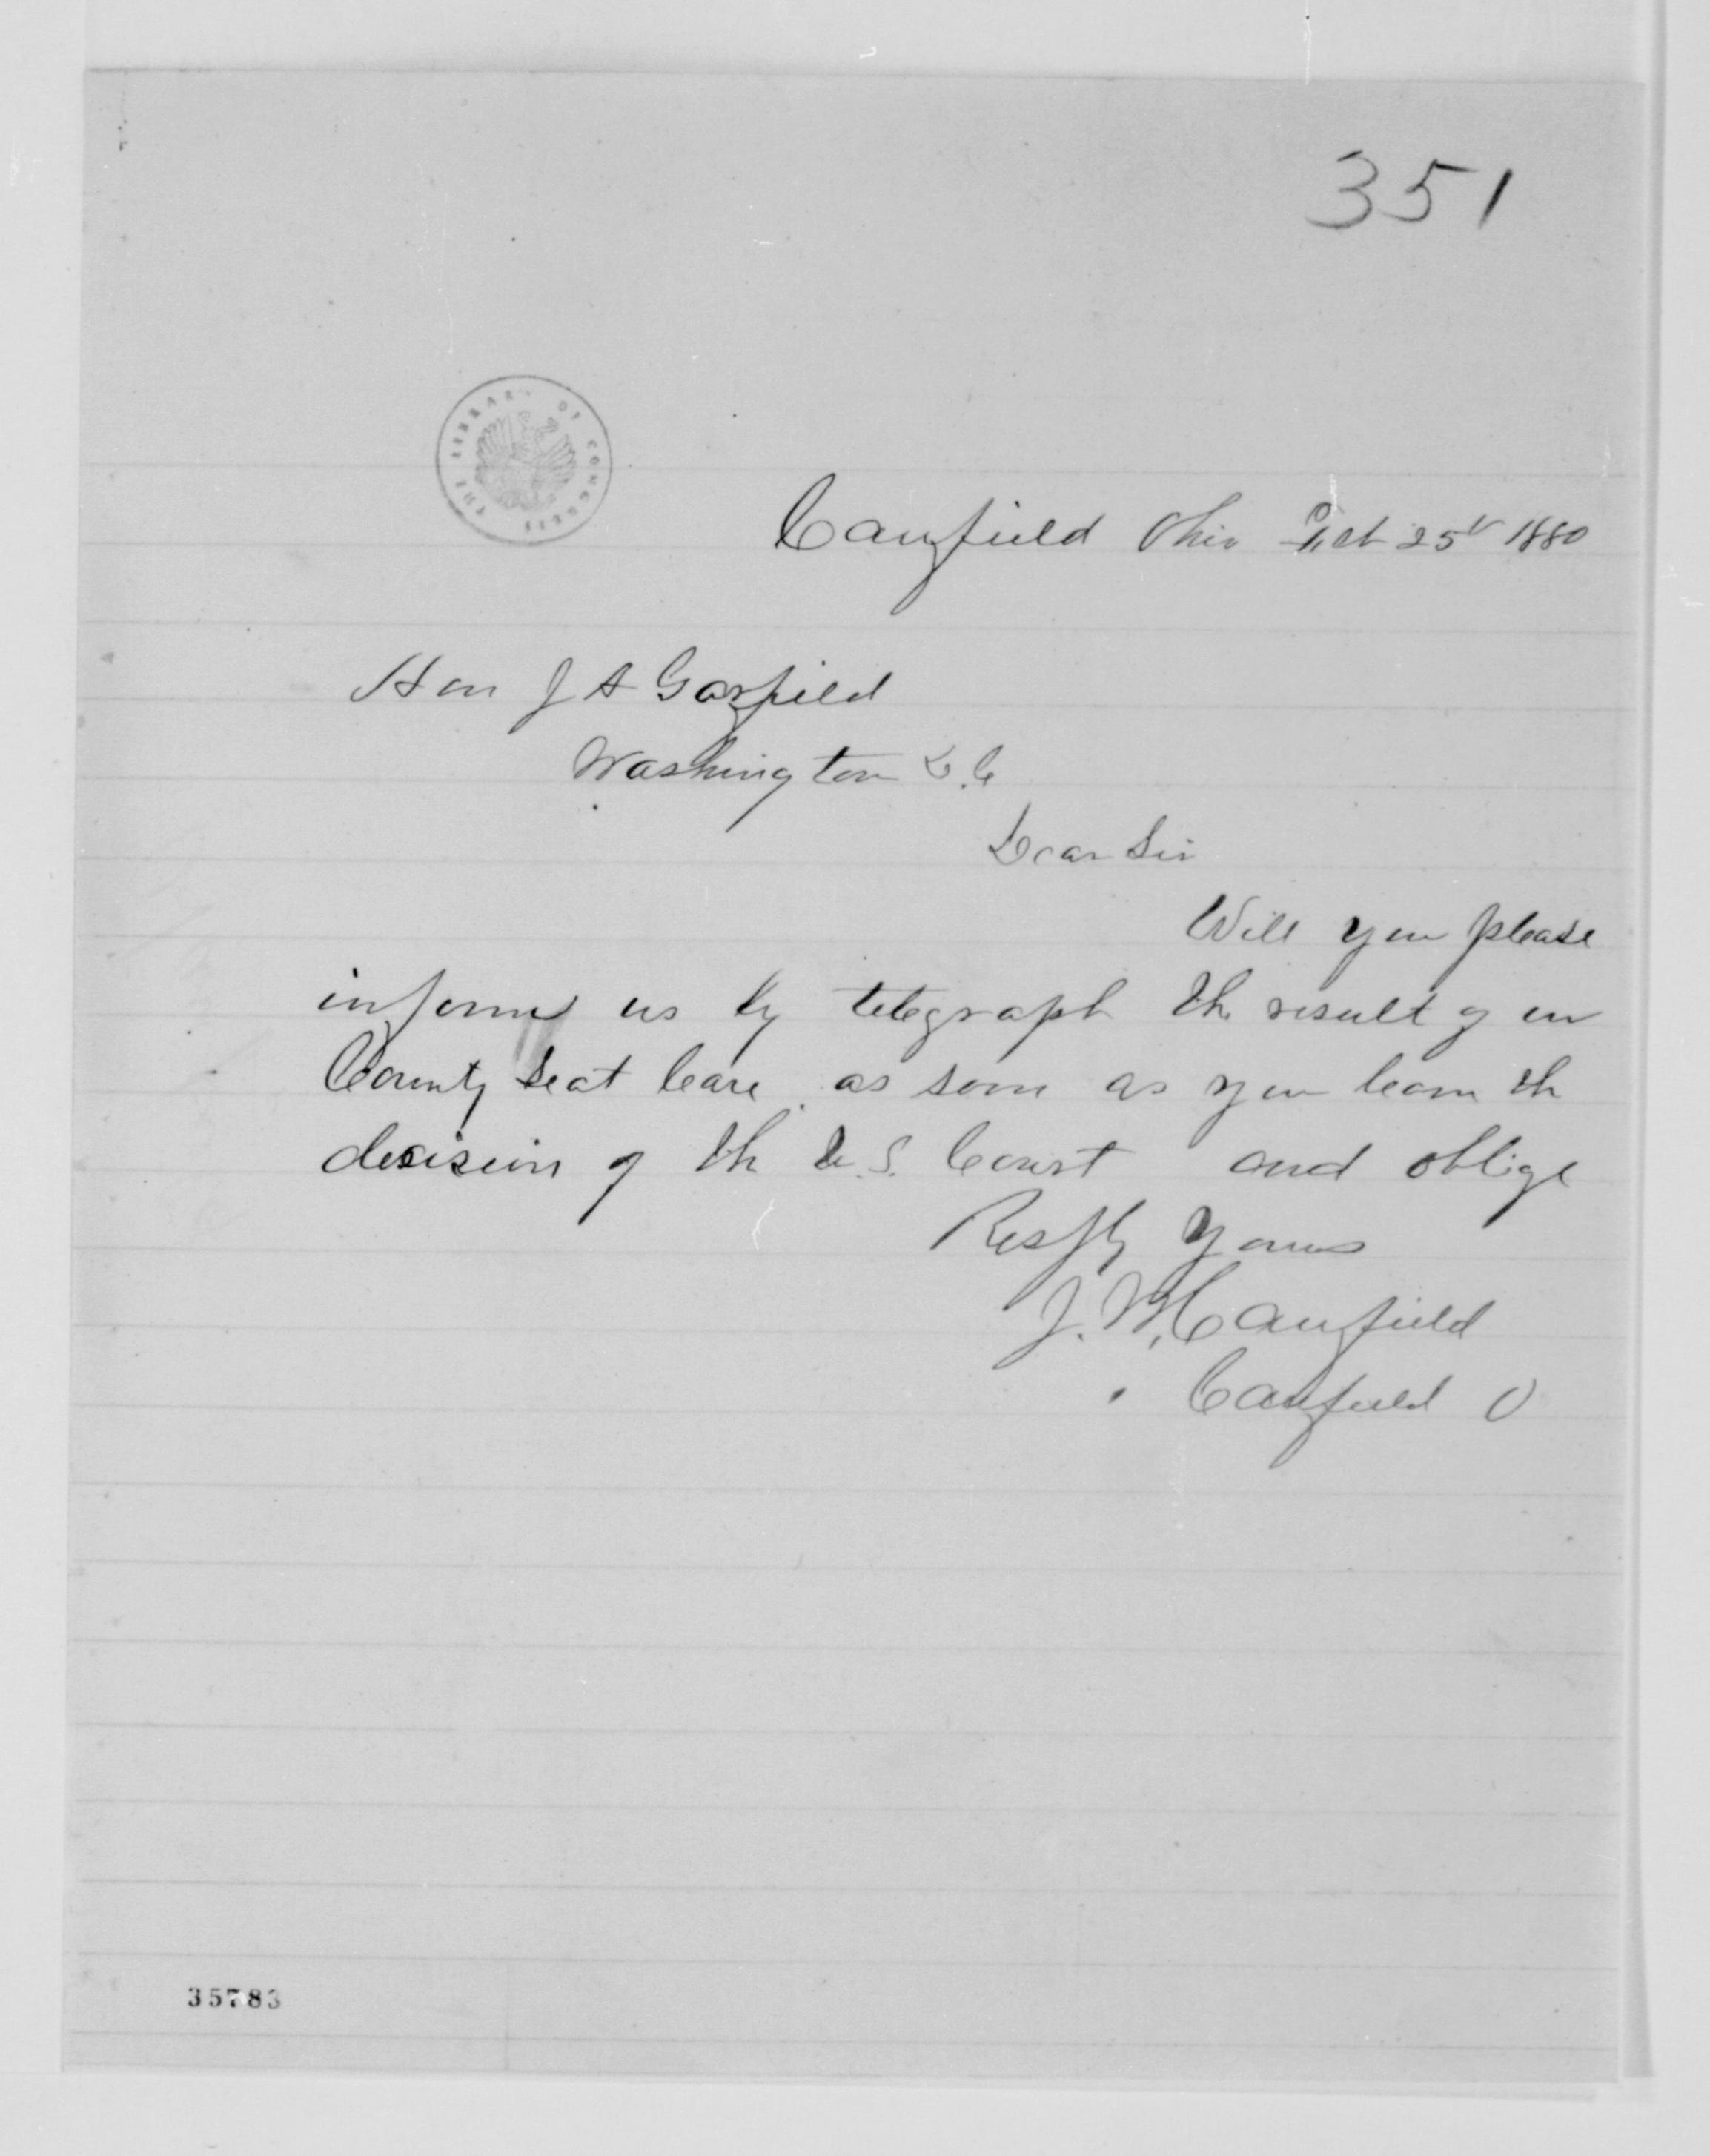 351
THE LIBRARY OF CONGRESS
Canfield Ohio Feb 25th 1880
Hon J A Garfield
Washington D.C
Dear Sir
Will you please
inform us by telegraph the result of our
County Seat Case as soon as you learn the
decision of the U.S. Court and oblige
Respty Yours
J. W. Canfield
Canfield O
35783